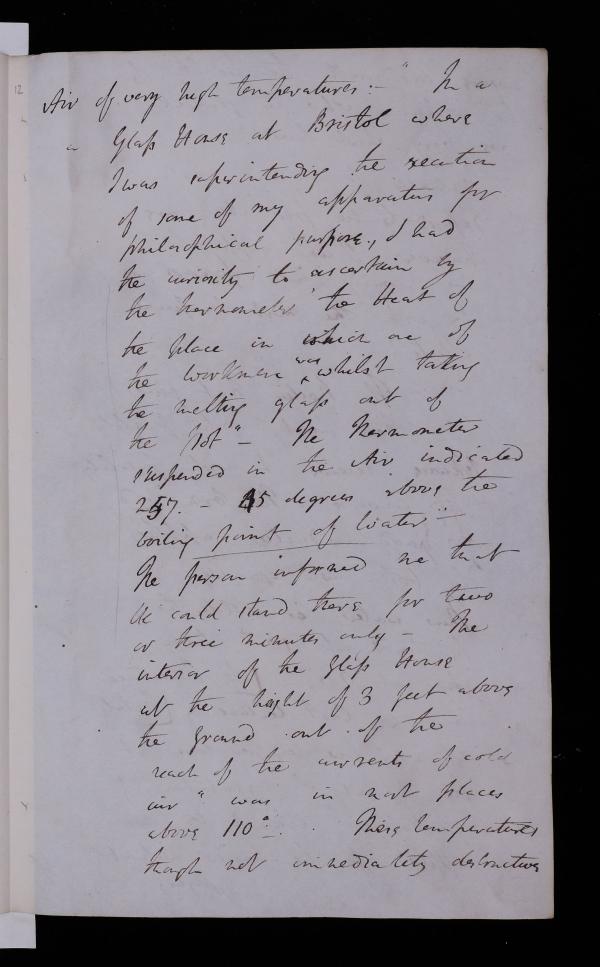 Air of very high temperatures :- " In a
Glass House at Bristol where
I was superintending the execution
of some of my apparatus for
philosophical purposes, I had
the curiosity to ascertain by
the thermometer the Heat of
the place in which one of
the workmen was whilst taking
the melting glass out of
the pot" - The Thermometer
suspended in the Air indicated
257. - 45 degrees above the
boiling point of Water" -
The person informed me that
He could stand there for two
or three minutes only - The
interior of the Glass House
at the height of 3 feet above
the ground out of the
reach of the currents of cold
air " was in most places
above 110°. These temperatures
though not immediately destructive
12